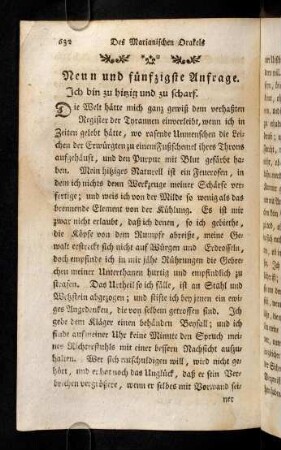 632 Des Marianischen Orakels
Neun und fünfzigste Anfrage.
Ich bin zu hitzig und zu scharf.
Die Welt hätte mich ganz gewiß dem verhaßten
Register der Tyrannen einverleibt, wenn ich in
Zeiten gelebt hätte, wo rasende Unmenschen die Lei-
chen der Erwürgten zu einem Fußschemel ihres Throns
aufgehäuft, und den Purpur mit Blut gefärbt ha-
ben. Mein hitziges Naturell ist ein Feuerofen, in
dem ich nichts denn Werkzeuge meiner Schärfe ver-
fertige; und weis ich von der Milde so wenig als das
brennende Element von der Kühlung. Es ist mir
zwar nicht erlaubt, daß ich denen, so ich gebiethe,
die Köpfe von dem Rumpfe abreiße, meine Ge-
walt erstreckt sich nicht auf Würgen und Erdrosseln,
doch empfinde ich in mir jähe Rührungen die Gebre-
chen meiner Unterthanen hurtig und empfindlich zu
strafen. Das Urtheil so ich fälle, ist an Stahl und
Wetzstein abgezogen; und stifte ich bey jenen ein ewi-
ges Angedenken, die von selbem getroffen sind. Ich
gebe dem Kläger einen behänden Beyfall; und ich
finde auf meiner Uhr keine Minute den Spruch mei-
nes Richterstuhls mit einer bessern Nachsicht aufzu-
halten. Wer sich entschuldigen will, wird nicht ge-
hört, und er hat noch das Unglück, daß er sein Ver-
brechen vergrößere, wenn er selbes mit Vorwand sei-
ner